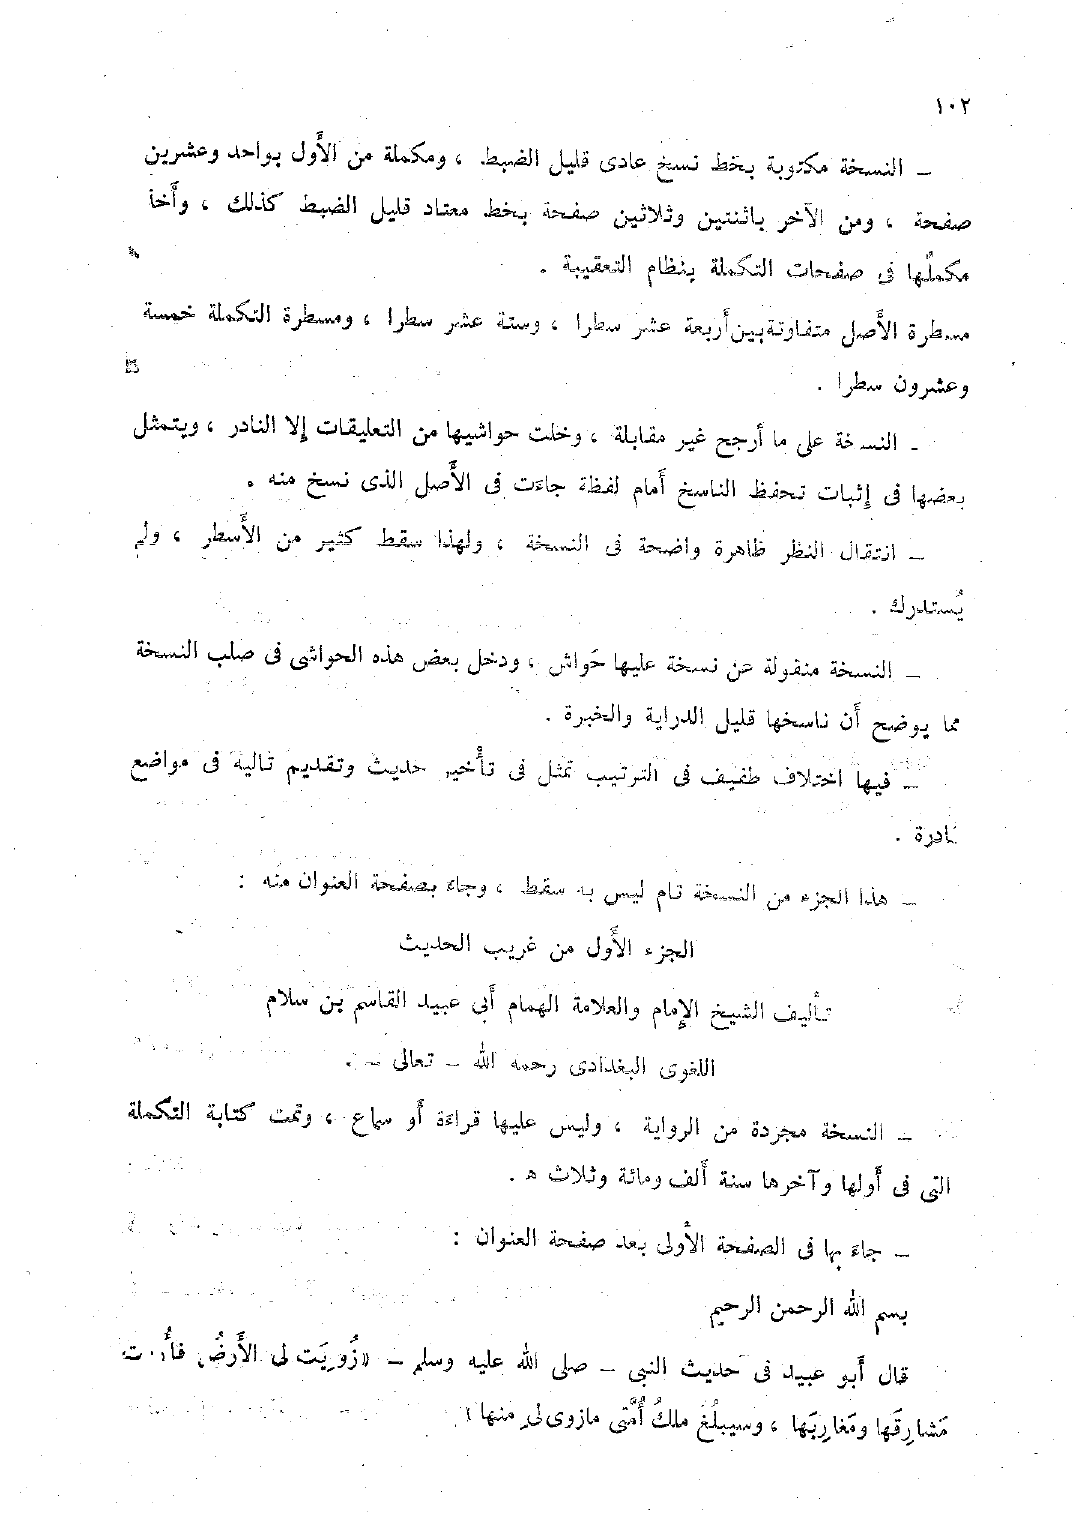 ١٠٢
ــ النسخة مكتوبة بخط نسخ عادى قليل الضبط ، ومكملة من الأَول بواحد وعشرين
صفحة ، ومن الآخر باثنتين وثلاثين صفحة بخط معتاد قليل الضبط كذلك ، وأَخذ
مكملُها فى صفحات التكملة بنظام التعقيبة .
مسطرة الأَصل متفاوتة بين أَربعة عشر سطرا ، وستة عشر سطرا ، ومسطرة التكملة خمسة
وعشرون سطرا .
ــ النسخة على ما أرجح غير مقابلة ، وخلت حواشيها من التعليقات إلا النادر ، ويتمثل
بعضها فى إثبات تحفظ الناسخ أَمام لفظة جاءَت فى الأَصل الذى نسخ منه .
ــ انتقال النظر ظاهرة واضحة فى النسخة ، ولهذا سقط كثير من الأَسطر ، ولم
يُستدرك .
ــ النسخة منقولة عن نسخة عليها حَواش ، ودخل بعض هذه الحواشى فى صلب النسخة
مما يوضح أَن ناسخها قليل الدراية والخبرة .
ــ فيها اختلاف طفيف فى الترتيب تمثل فى تأْخير حديث وتقديم تاليه فى مواضع
نادرة .
ــ هذا الجزء من النسخة تام ليس به سقط ، وجاءَ بصفحة العنوان منه :
الجزء الأَول من غريب الحديث
تأليف الشيخ الإِمام والعلامة الهمام أَبى عبيد القاسم بن سلام
اللغوى البغدادى رحمه الله ــ تعالى ــ .
ــ النسخة مجردة من الرواية ، وليس عليها قراءَة أَو سماع ، وتمت كتابة التكملة
التى فى أَولها وآخرها سنة أَلف ومائة وثلاث ه .
ــ جاءَ بها فى الصفحة الأُولى بعد صفحة العنوان :
بسم الله الرحمن الرحيم
قال أَبو عبيد فى حديث النبى ــ صلى الله عليه وسلم ــ «زُوِيَت لى الأَرضُ
مَشارِقَها ومَغارِبَها ، وسيبلُغ ملكُ أُمَّتى مازوى لىِ منها»